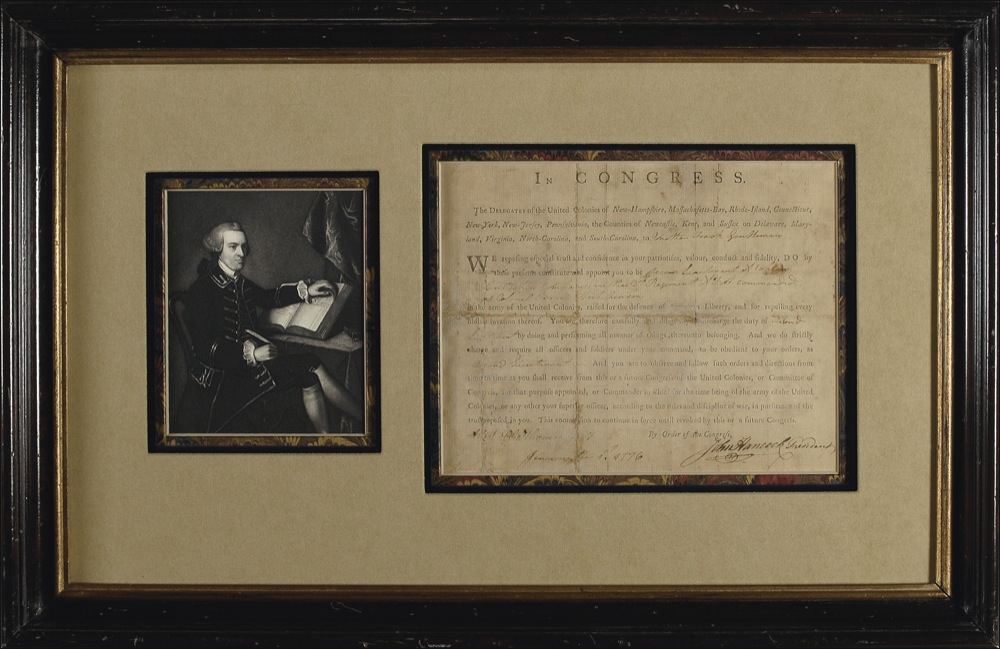 IN CONGRESS.
The DELEGATES of the United Colonies of New-Hampshire, Massachusetts-Bay, Rhode-Island, Connecticut,
New-York, New-Jersey, Pennsylvania, the Counties of Newcastle, Kent, and Sussex on Delaware, Mary-
land, Virginia, North-Carolina, and South-Carolina, to Gentleman
WE reposing especial trust and confidence in your patriotism, valour, conduct and fidelity, DO by
these presents constitute and appoint you to be Second Lieutenant of
Regiment commanded
by Colonel
in the army of the United Colonies, raised for the defence of American Liberty, and for repelling every
hostile invasion thereof. You are therefore carefully and diligently to discharge the duty of Second
Lieutenant by doing and performing all manner of things thereunto belonging. And we do strictly
charge and require all officers and soldiers under your command, to be obedient to your orders, as
Second Lieutenant And you are to observe and follow such orders and directions from
time to time as you shall receive from this or a future Congress of the United Colonies, or Committee of
Congress, for that purpose appointed, or Commander in Chief for the time being of the army of the United
Colonies, or any other your superior officer, according to the rules and discipline of war, in pursuance of the
trust reposed in you. This commission to continue in force until revoked by this or a future Congress.
By Order of the Congress,
1776
John Hancock President